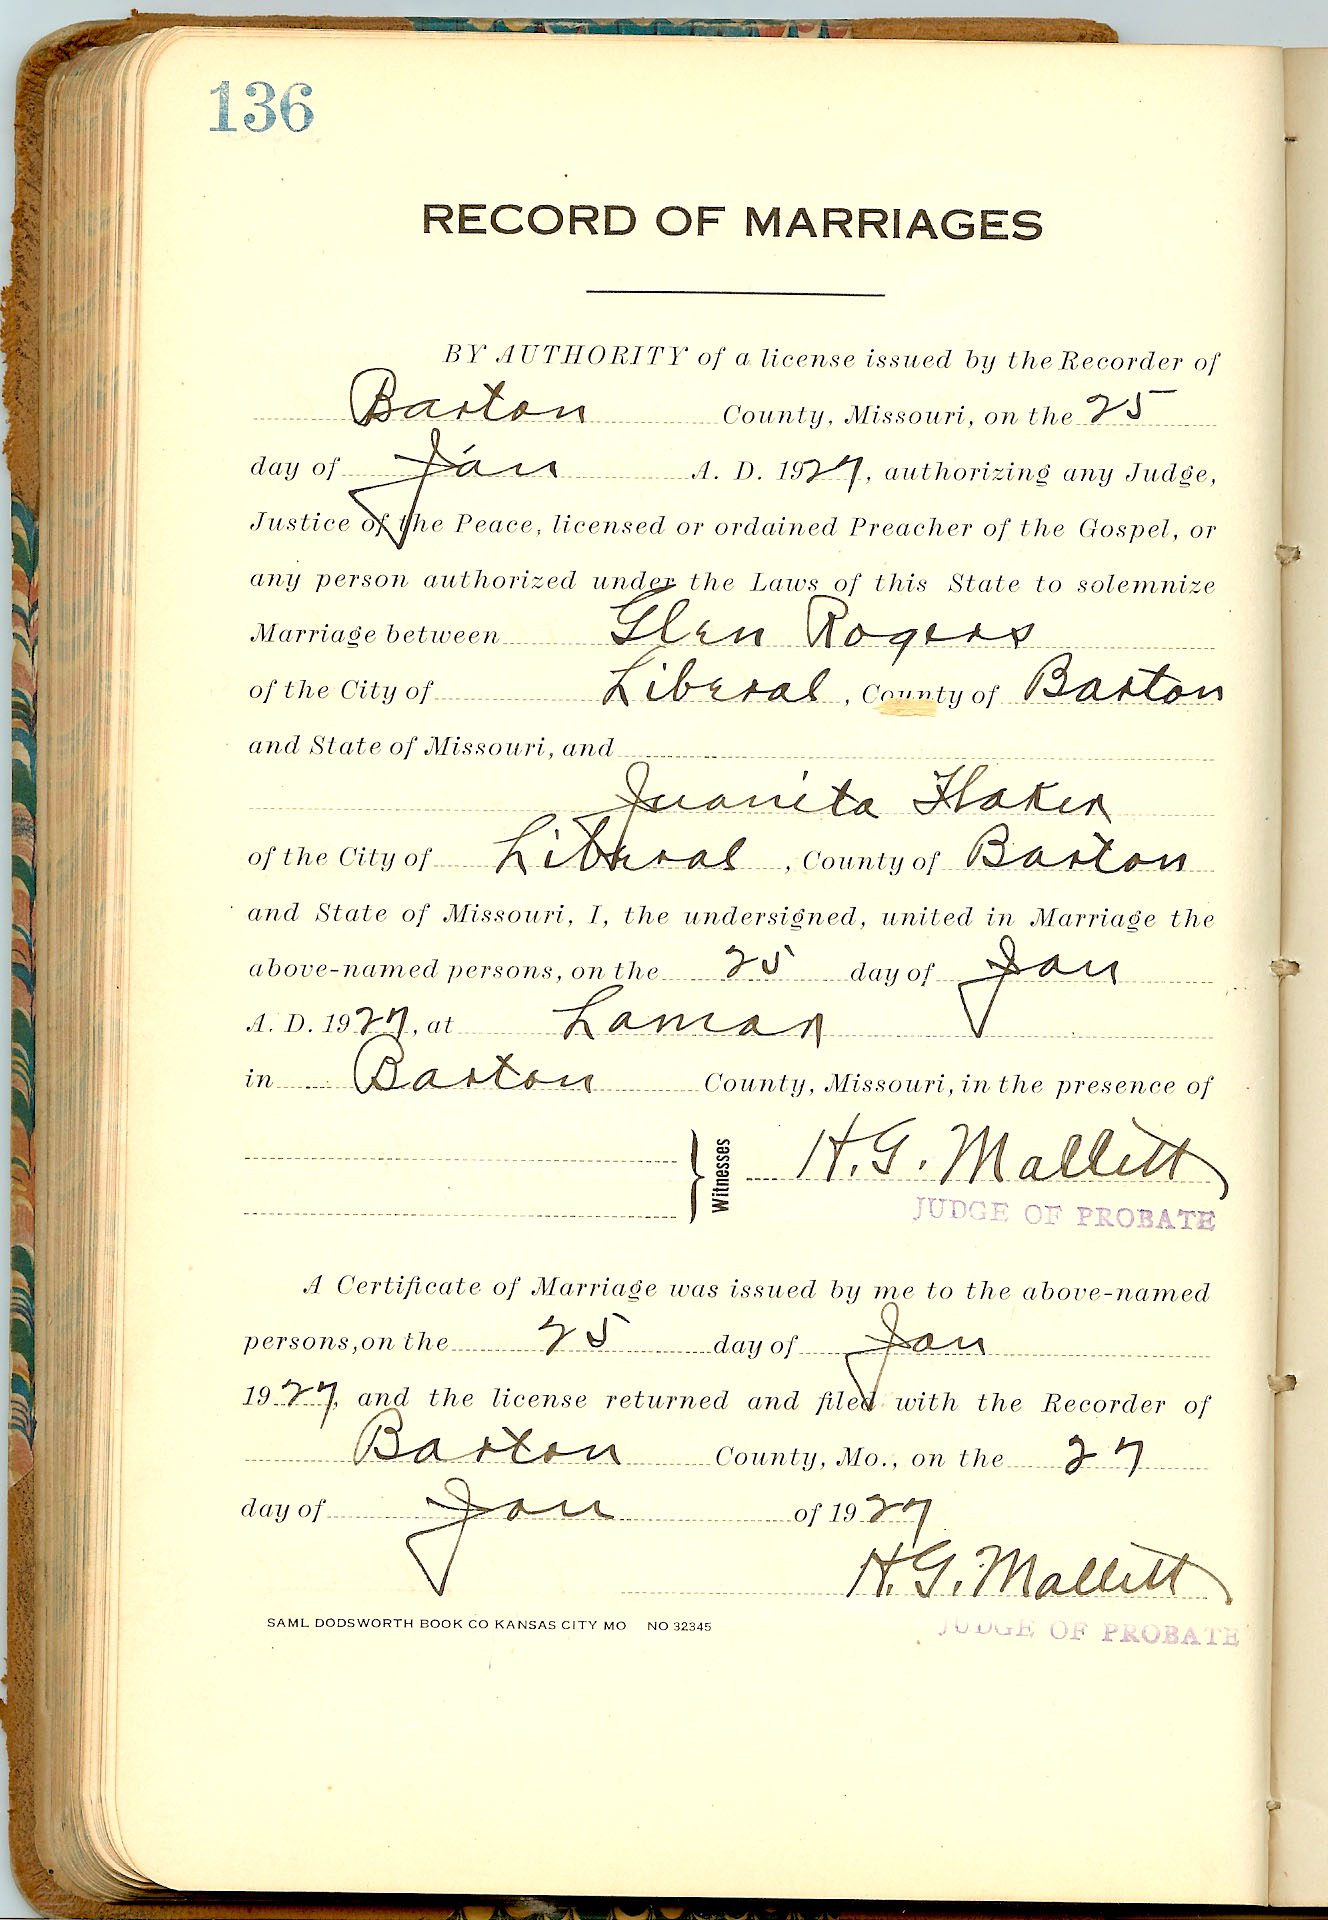 136
RECORD OF MARRIAGES
BY AUTHORITY of a license issued by the Recorder of
Barton County, Missouri, on the 25
day of Jan A. D. 1927, authorizing any Judge,
Justice of the Peace, licensed or ordained Preacher of the Gospel, or
any person authorized under the Laws of this State to solemnize
Marriage between Glen Rogers
of the City of Liberal, County of Barton
and State of Missouri, and
Juanita Flaker
of the City of Liberal, County of Barton
and State of Missouri, I, the undersigned, united in Marriage the
above-named persons, on the 25 day of Jan
A. D. 1927, at Lamar
in Barton County, Missouri, in the presence of
Witnesses H. G. Mallitt
JUDGE OF PROBATE
A Certificate of Marriage was issued by me to the above-named
persons, on the 25 day of Jan
1927, and the license returned and filed with the Recorder of
Barton County, Mo., on the 27
day of Jan of 1927
H. G. Mallitt
SAML DODSWORTH BOOK CO KANSAS CITY MO NO 32345
JUDGE OF PROBATE